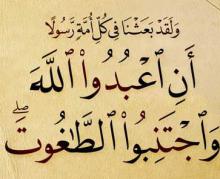 وَلَقَدْ بَعَثْنَا فِي كُلِّ أُمَّةٍ رَّسُولًا
أَنِ ٱعْبُدُوا۟ ٱللَّهَ
وَٱجْتَنِبُوا۟ ٱلطَّٰغُوتَ ۖ